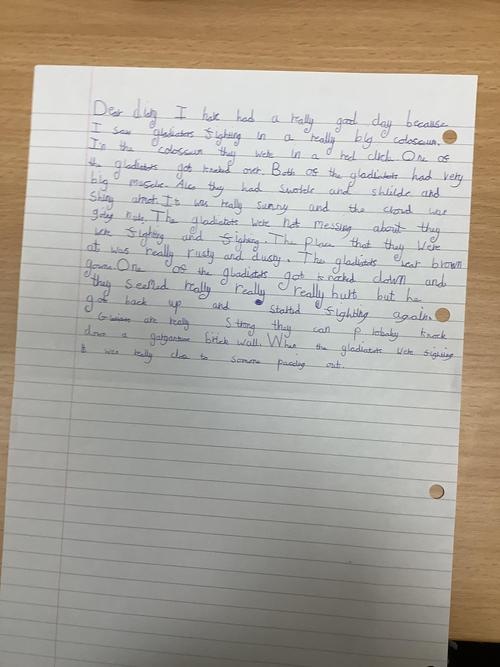 Dear diary I have had a really good day because
I saw gladiators fighting in a really big colosseum.
In the colosseum they were in a red circle. One of
the gladiators got knocked over. Both of the gladiators had very
big muscle. Also they had swords and shields and
shiny armor. It was really sunny and the crowd was
going nuts. The gladiators were not messing about they
were fighting and fighting. The place that they were
at was really rusty and dusty. The gladiators wear brown
gowns. One of the gladiators got knocked down and
they seemed really really really hurt but he
got back up and started fighting again.
are really strong they can probably knock
down a gargantuan brick wall. When the gladiators were fighting
it was really close to someone passing out.